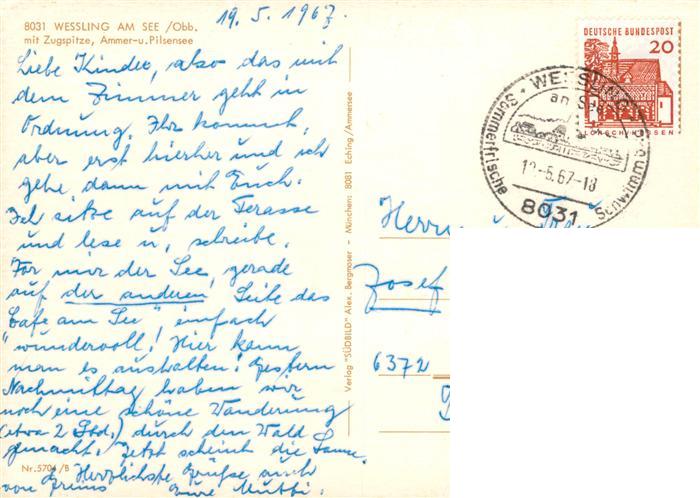 19. 5. 1967.
8031 WESSLING AM SEE /Obb.
mit Zugspitze, Ammer-u.Pilsensee
Liebe Kinder, also das mit
dem Zimmer geht in
Ordnung. Ihr kommt,
aber erst hierher und ich
gehe dann mit Euch.
Ich sitze auf der Terasse
und lese u. schreibe.
Vor mir der See, gerade
auf der anderen Seite das
"Cafe am See", einfach
"wundervoll! Hier kann
man es aushalten! Gestern
Nachmittag haben wir
noch eine schöne Wanderung
(etwa 2 Std.) durch den Wald
gemacht. Jetzt scheint die Sonne.
Herzlichste Grüße auch
von
Eure Mutti.
Nr. 5704/B
Verlag "SÜDBILD" Alex. Bergmoser - München; 8081 Eching/Ammersee
DEUTSCHE BUNDESPOST
20
WESSLING
am See
Sommerfrische
Schwimmbad
19.-5.67-18
8031
Herrn u. Frau
Josef
6372